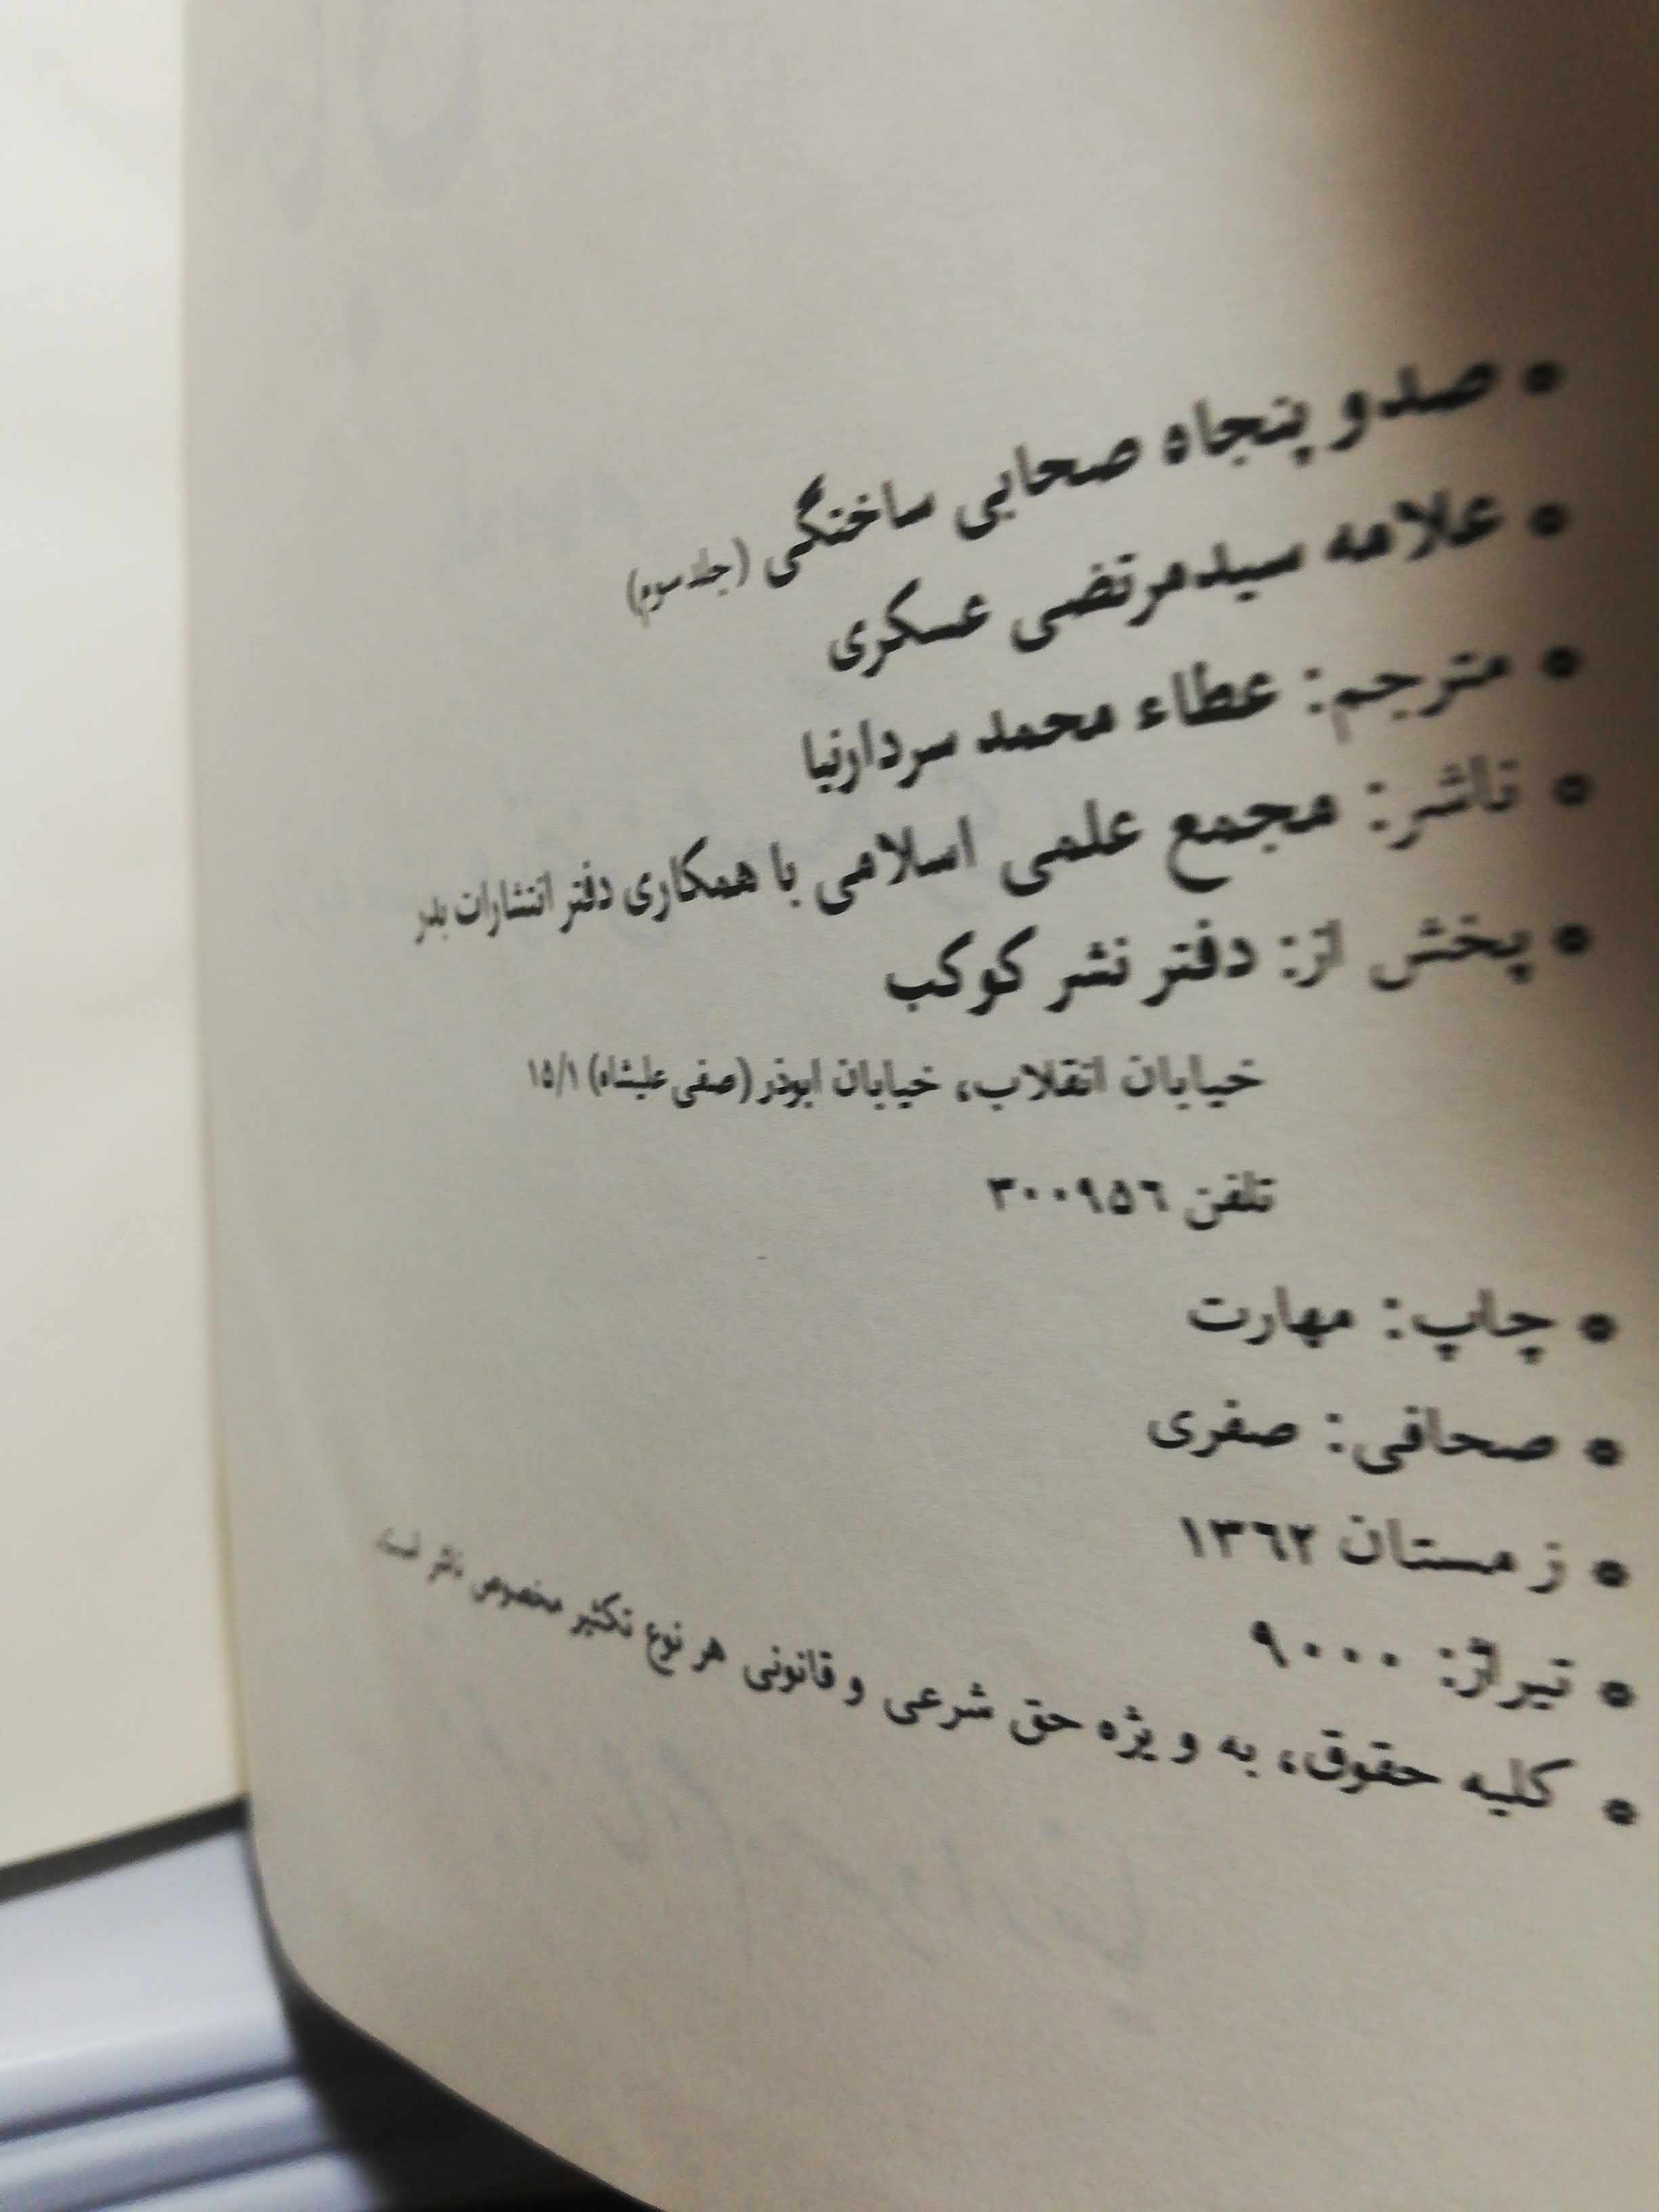 • صدو پنجاه صحابی ساختگی (جلد سوم)
• علامه سیدمرتضی عسکری
• مترجم: عطاء محمد سردارنیا
• ناشر: مجمع علمی اسلامی با همکاری دفتر انتشارات بدر
• پخش از: دفتر نشر کوکب
خیابان انقلاب، خیابان ابوذر (صفی علیشاه) ۱۵/۱
تلفن ۳۰۰۹۵۶
• چاپ: مهارت
• صحافی: صفری
• زمستان ۱۳۶۲
• تیراژ: ۹۰۰۰
• کلیه حقوق، به ویژه حق شرعی و قانونی هر نوع تکثیر مخصوص ناشر است.